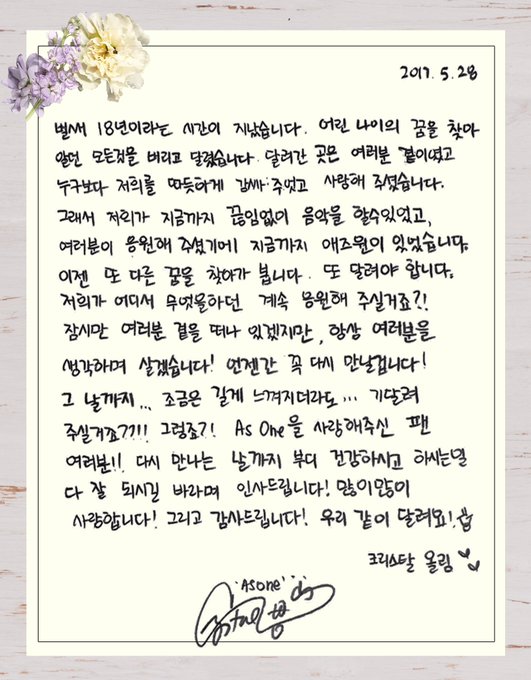 2017. 5. 28
벌써 18년이라는 시간이 지났습니다. 어린 나이의 꿈을 찾아
알던 모든것을 버리고 달렸습니다. 달려간 곳은 여러분 곁이였고
누구보다 저희를 따듯하게 감싸 주었고 사랑해 주셨습니다.
그래서 저희가 지금까지 끊임없이 음악을 할수있었고,
여러분이 응원해 주셨기에 지금까지 애즈원이 있었습니다.
이젠 또 다른 꿈을 찾아가 봅니다. 또 달려야 합니다.
저희가 어디서 무엇을하던 계속 응원해 주실거죠?!
잠시만 여러분 곁을 떠나 있겠지만, 항상 여러분을
생각하며 살겠습니다! 언젠간 꼭 다시 만날겁니다!
그 날까지... 조금은 길게 느껴지더라도... 기달려
주실거죠??!!! 그렇죠?! As One을 사랑해주신 팬
여러분!! 다시 만나는 날까지 부디 건강하시고 하시는일
다 잘 되시길 바라며 인사드립니다! 많이많이
사랑합니다! 그리고 감사드립니다! 우리 같이 달려요!
크리스탈 올림
ASONE